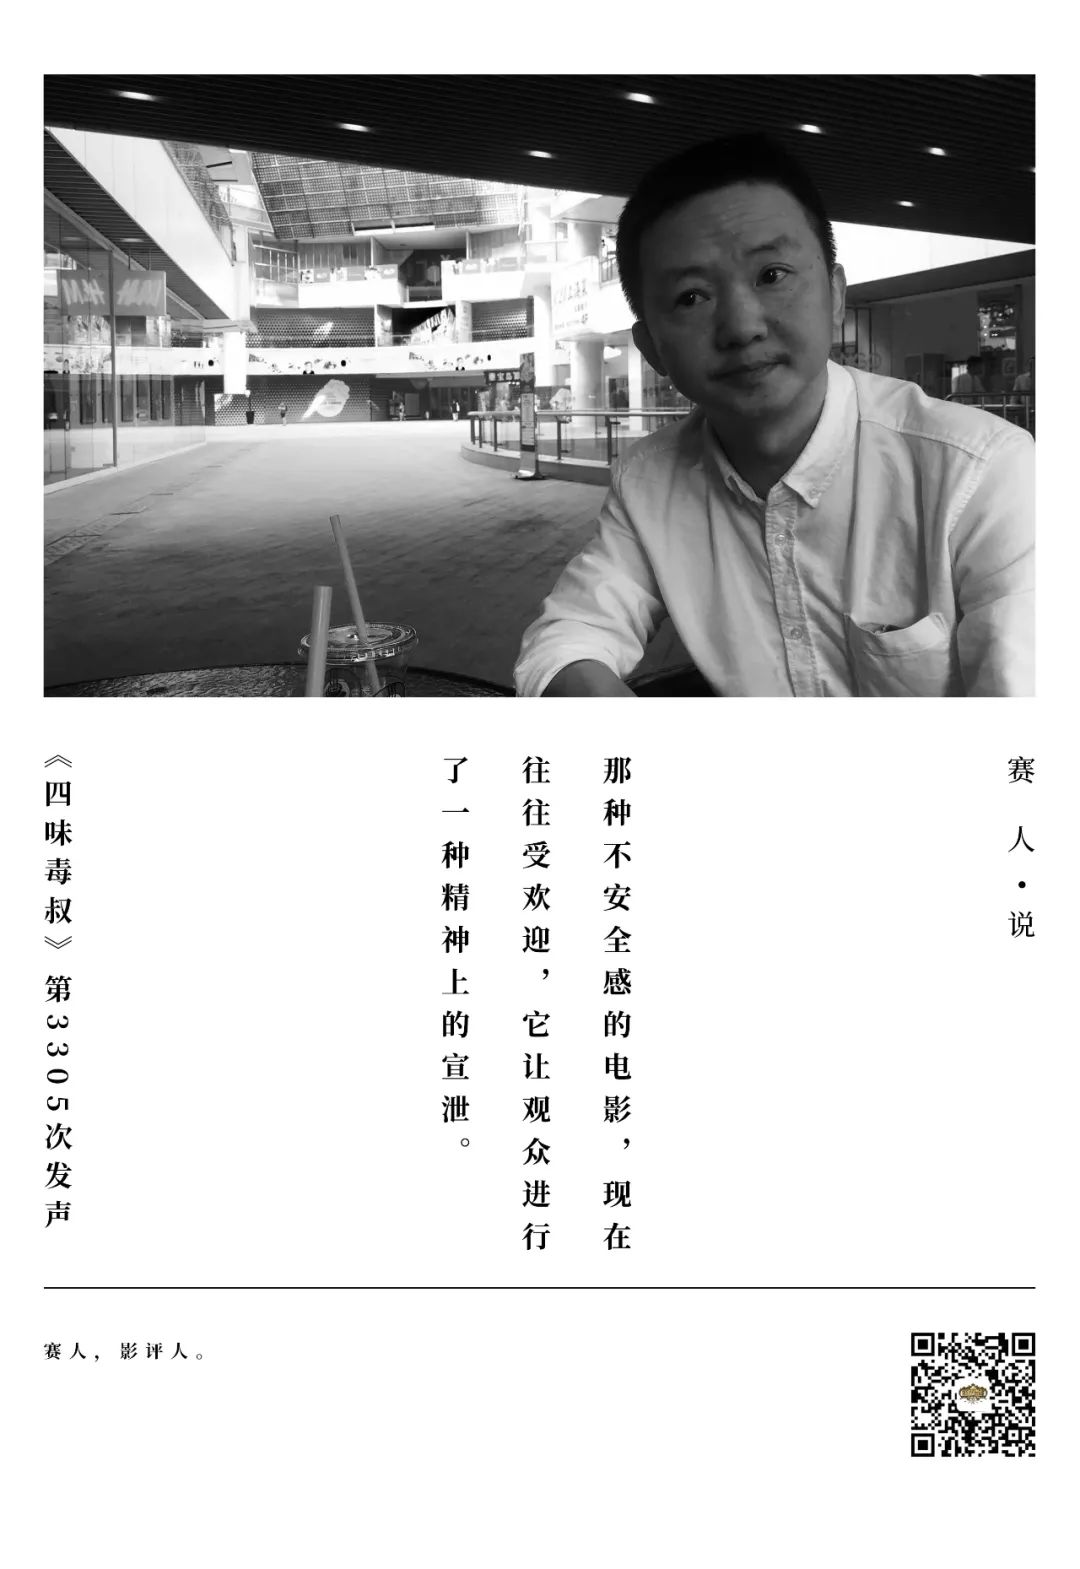 赛人·说
那种不安全感的电影，现在
往往受欢迎，它让观众进行
了一种精神上的宣泄。
《四味毒叔》第3305次发声
赛人，影评人。